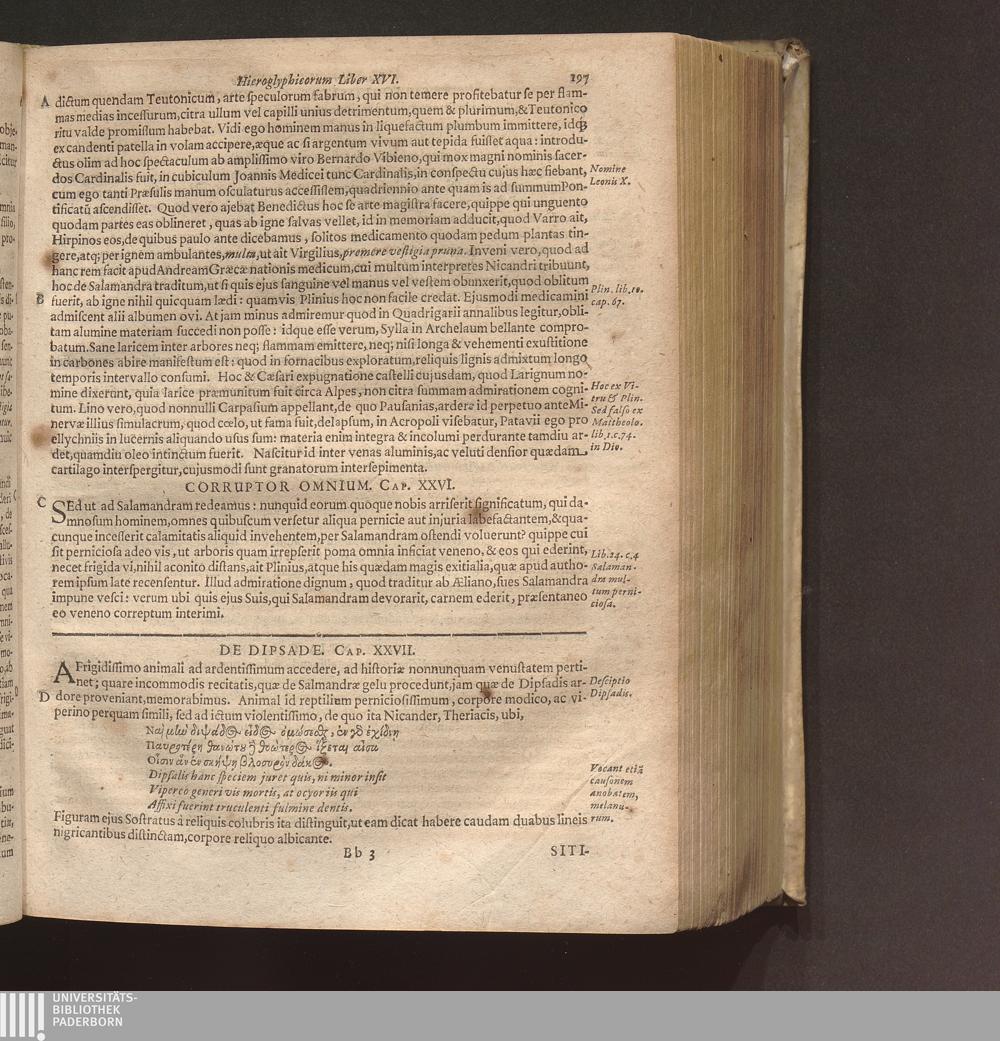 Hieroglyphicorum Liber XVI. 197
A dictum quendam Teutonicum, arte speculorum fabrum, qui non temere profitebatur se per flam-
mas medias incessurum, citra ullum vel capilli unius detrimentum, quem & plurimum, & Teutonico
ritu valde promissum habebat. Vidi ego hominem manus in liquefactum plumbum immittere, idq́;
ex candenti patella in volam accipere, æque ac si argentum vivum aut tepida fuisset aqua: introdu-
ctus olim ad hoc spectaculum ab amplissimo viro Bernardo Vibieno, qui mox magni nominis sacer-
dos Cardinalis fuit, in cubiculum Joannis Medicei tunc Cardinalis, in conspectu cujus hæc fiebant,
Nomine
cum ego tanti Præsulis manum osculaturus accessissem, quadriennio ante quam is ad summum Pon-
Leonis X.
tificatũ ascendisset. Quod vero ajebat Benedictus hoc se arte magistra facere, quippe qui unguento
quodam partes eas oblineret, quas ab igne salvas vellet, id in memoriam adducit, quod Varro ait,
Hirpinos eos, de quibus paulo ante dicebamus, solitos medicamento quodam pedum plantas tin-
gere, atq; per ignem ambulantes, multa, ut ait Virgilius, premere vestigia pruna. Inveni vero, quod ad
hanc rem facit apud Andream Græcæ nationis medicum, cui multum interpretes Nicandri tribuunt,
hoc de Salamandra traditum, ut si quis ejus sanguine vel manus vel vestem obunxerit, quod oblitum
B fuerit, ab igne nihil quicquam lædi: quamvis Plinius hoc non facile credat. Ejusmodi medicamini
Plin. lib. 10.
cap. 67.
admiscent alii albumen ovi. At jam minus admiremur quod in Quadrigarii annalibus legitur, obli-
tam alumine materiam succedi non posse: idque esse verum, Sylla in Archelaum bellante compro-
batum. Sane laricem inter arbores neq; flammam emittere, neq; nisi longa & vehementi exustitione
in carbones abire manifestum est: quod in fornacibus exploratum, reliquis lignis admixtum longo
temporis intervallo consumi. Hoc & Cæsari expugnatione castelli cujusdam, quod Larignum no-
mine dixerunt, quia larice præmunitum fuit circa Alpes, non citra summam admirationem cogni-
Hoc ex Vi-
tru & Plin.
tum. Lino vero, quod nonnulli Carpasium appellant, de quo Pausanias, ardere id perpetuo ante Mi-
Sed falso ex
nervæ illius simulacrum, quod cœlo, ut fama fuit, delapsum, in Acropoli visebatur, Patavii ego pro
Mattheolo.
ellychniis in lucernis aliquando usus sum: materia enim integra & incolumi perdurante tamdiu ar-
lib. 1. c. 74.
det, quamdiu oleo intinctum fuerit. Nascitur id inter venas aluminis, ac veluti densior quædam
in Dio.
cartilago interspergitur, cujusmodi sunt granatorum intersepimenta.
CORRUPTOR OMNIUM. CAP. XXVI.
C SEd ut ad Salamandram redeamus: nunquid eorum quoque nobis arriserit significatum, qui da-
mnosum hominem, omnes quibuscum versetur aliqua pernicie aut injuria labefactantem, & qua-
cunque incesserit calamitatis aliquid invehentem, per Salamandram ostendi voluerunt? quippe cui
sit perniciosa adeo vis, ut arboris quam irrepserit poma omnia inficiat veneno, & eos qui ederint,
necet frigida vi, nihil aconito distans, ait Plinius, atque his quædam magis exitialia, quæ apud autho-
Lib. 24. c. 4
Salaman-
rem ipsum late recensentur. Illud admiratione dignum, quod traditur ab Æliano, sues Salamandra
dra mul-
impune vesci: verum ubi quis ejus Suis, qui Salamandram devorarit, carnem ederit, præsentaneo
tum perni-
ciosa.
eo veneno correptum interimi.
DE DIPSADE. CAP. XXVII.
A Frigidissimo animali ad ardentissimum accedere, ad historiæ nonnunquam venustatem perti-
net; quare incommodis recitatis, quæ de Salmandræ gelu procedunt, jam quæ de Dipsadis ar-
Desciptio
Dipsadis.
D dore proveniant, memorabimus. Animal id reptilium perniciosissimum, corpore modico, ac vi-
perino perquam simili, sed ad ictum violentissimo, de quo ita Nicander, Theriacis, ubi,
Dipsalis hanc speciem juret quis, ni minor insit
Viperco generi vis mortis, at ocyor iis qui
Affixi fuerint truculenti fulmine dentis.
Vocant etiã
causonem
anobatem,
melanu-
rum.
Figuram ejus Sostratus à reliquis colubris ita distinguit, ut eam dicat habere caudam duabus lineis
nigricantibus distinctam, corpore reliquo albicante.
Bb 3 SITI-
UNIVERSITÄTS-
BIBLIOTHEK
PADERBORN